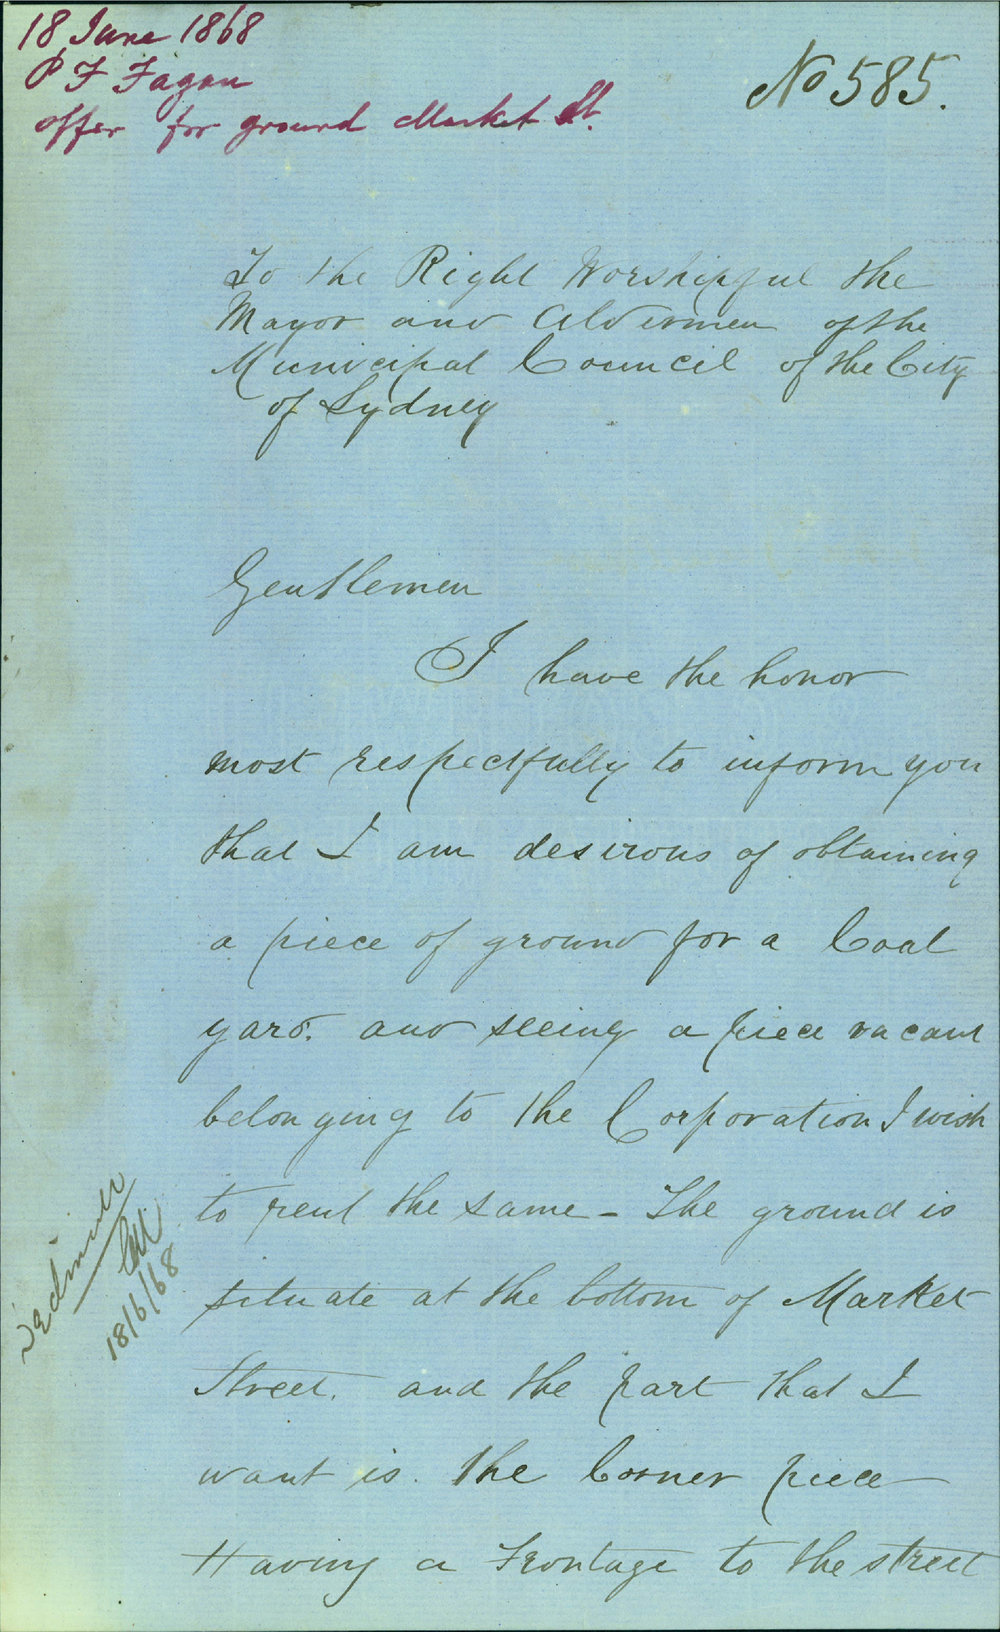 18 June 1868
P F Fagan
offer for ground Market St.
No 585.
To the Right Worshipful the
Mayor and Aldermen of the
Municipal Council of the City
of Sydney
Gentlemen
I have the honor
most respectfully to inform you
that I am desirous of obtaining
a piece of ground for a Coal
yard. and seeing a piece vacant
belonging to the Corporation I wish
to rent the same - The ground is
situate at the bottom of Market
Street. and the part that I
want is. the Corner piece
Having a Frontage to the street
18/6/68